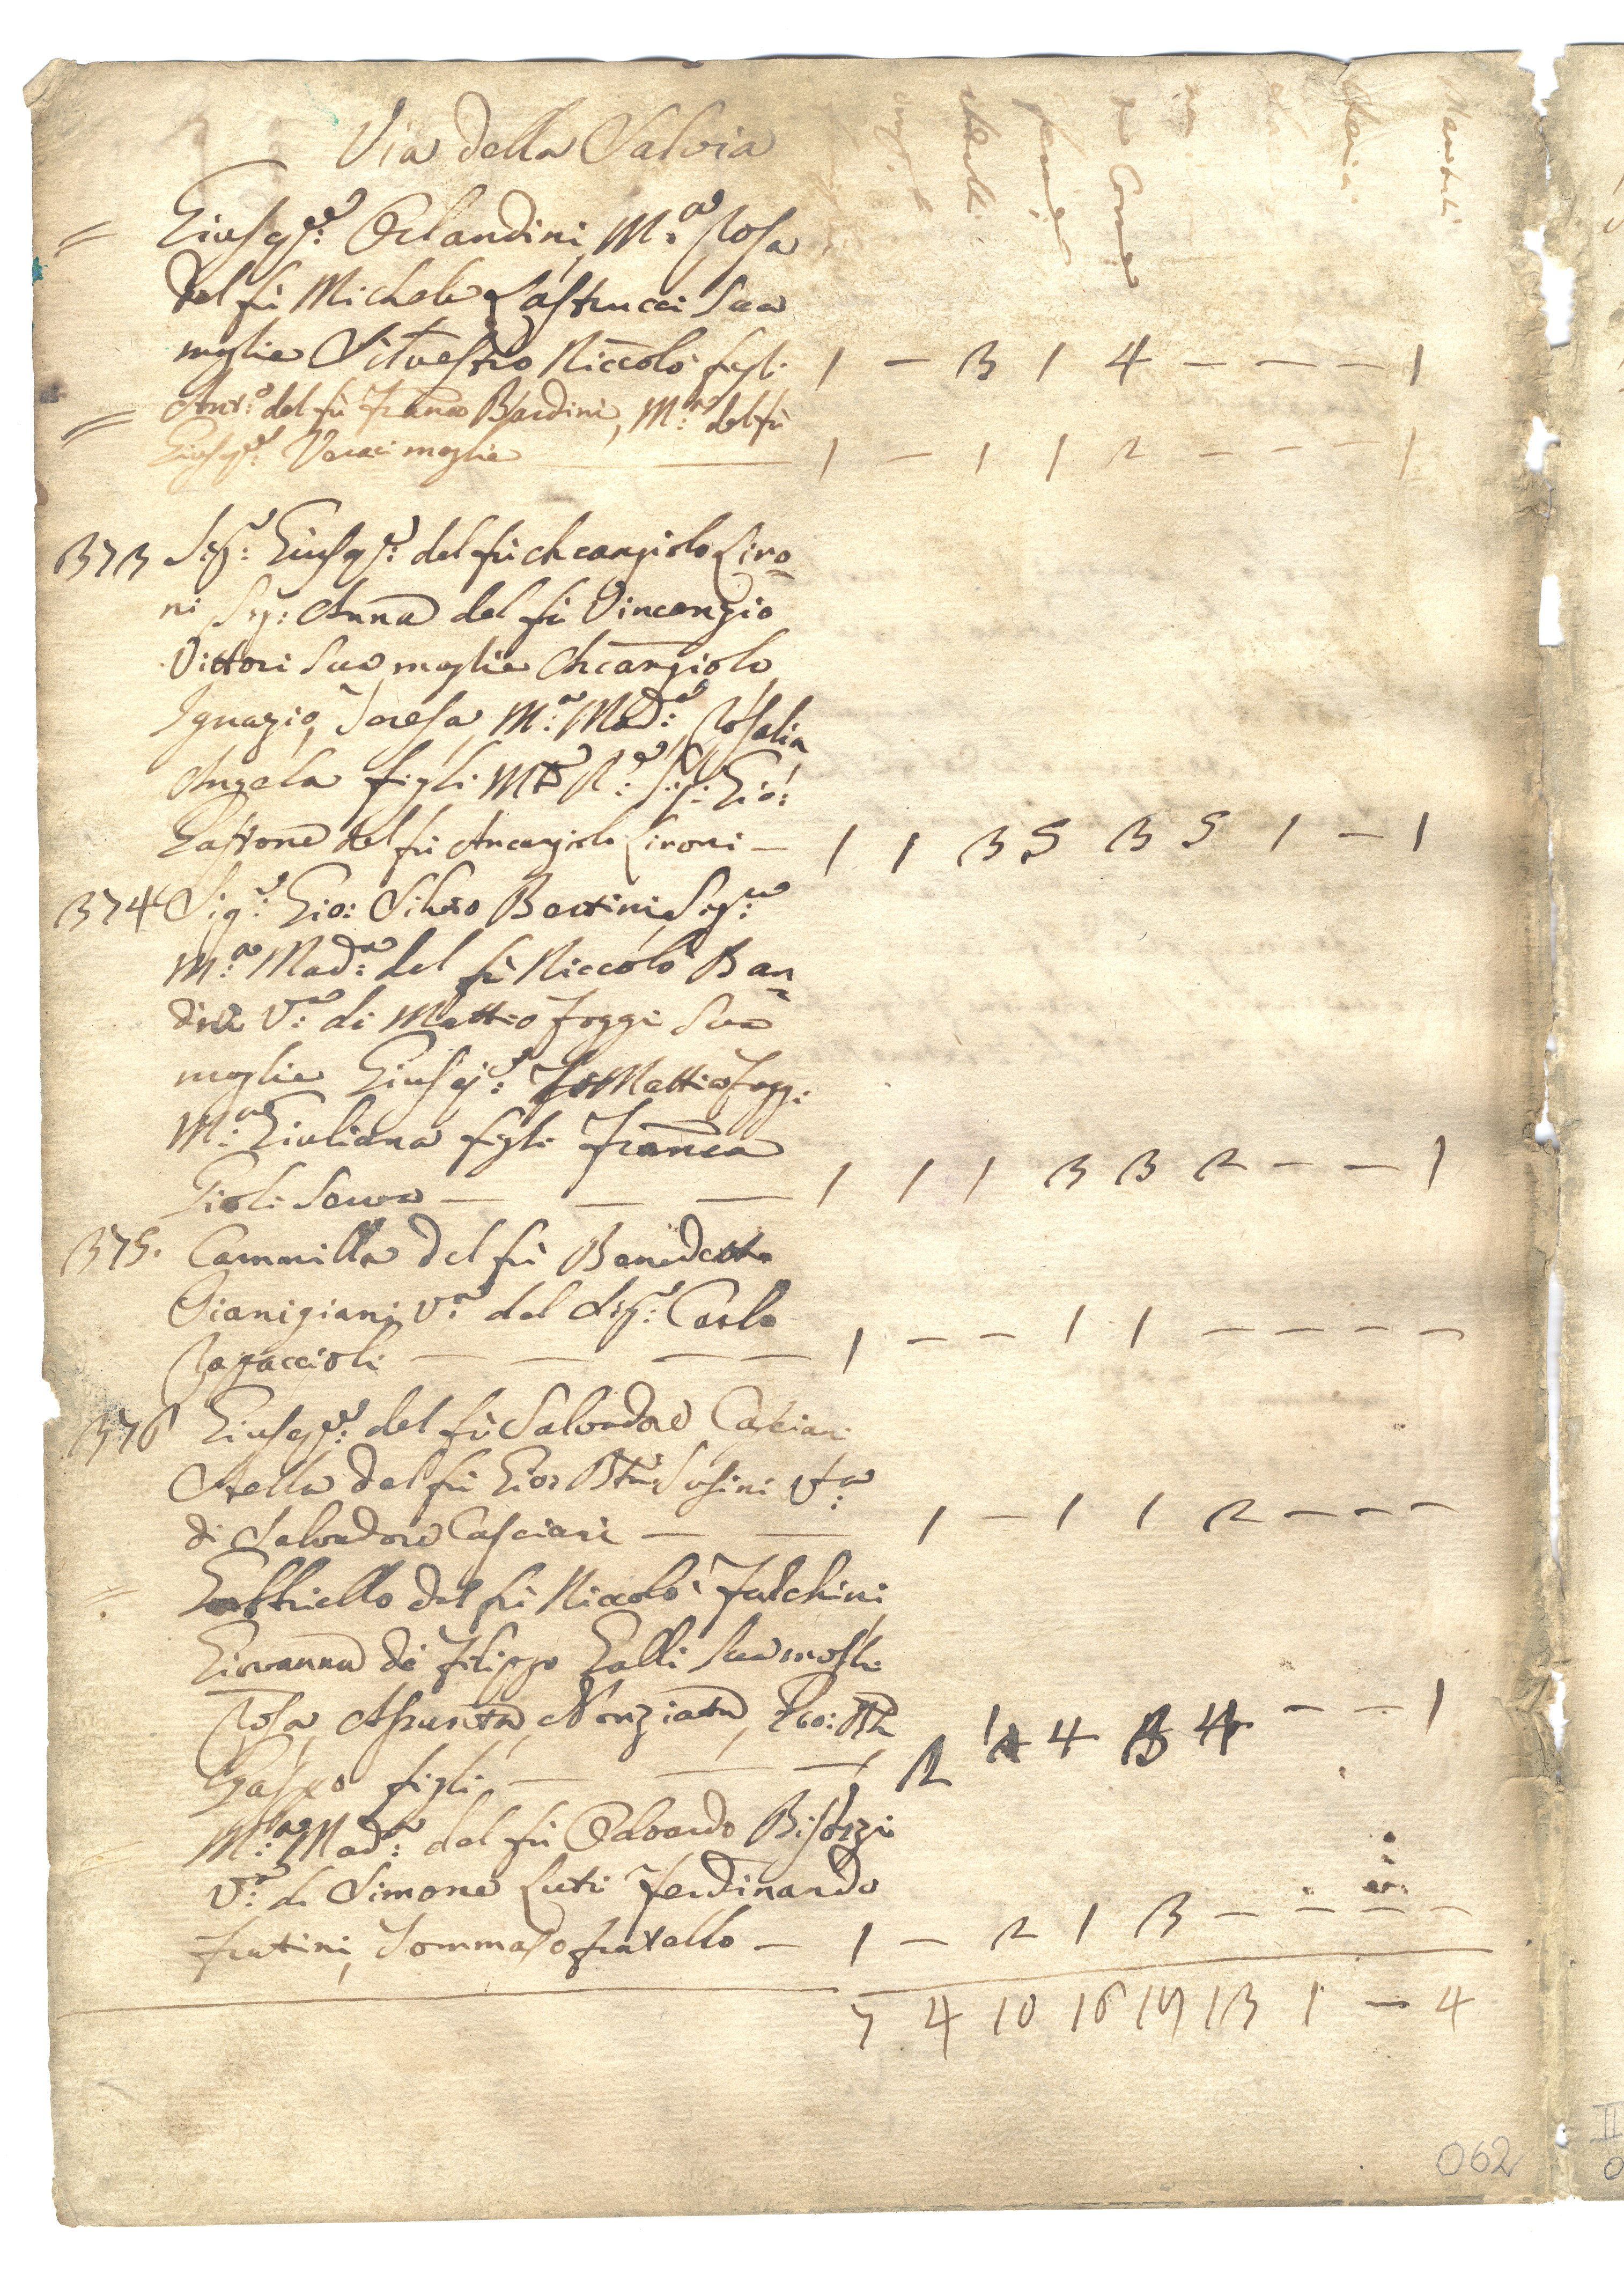 Via della Salvia
= Giusep.e: Orlandini, M.a Rosa
del fù Michele Lastrucci Sua
moglie Silvestro Niccolò figli 1 — 3 1 4 — — — 1
= Ant.o: del fù Franco Bardini, M.a: del fù
Giusep.e: Veraci moglie — — 1 — 1 1 2 — — — 1
373 Sig.e: Giusep.e: del fù Arcangiolo Liro=
ni Sig: Anna del fù Vincenzio
Vittori Sua moglie Arcangiolo
Ignazio, Teresa, M.a: Mad.a: Rosalia
Angela figli M R.e: Sig: Gio:
Gastone del fù Arcangiolo Lironi — 1 1 3 5 3 5 1 — 1
374 Sig.e: Gio: Silvio Bertini, Sig.ra:
M.a: Mad.a: del fù Niccolò Ban=
dini V.a: di Matteo Foggi Sua
moglie Giusep.e: Matteo Foggi
M.a: Giuliana figli Franca
Gioli Serva — — — 1 1 1 3 3 2 — — 1
375. Cammilla del fù Benedetto
Gianigiani V.a del Sig.e: Carlo
Ragaccioli — — — 1 — — 1 1 — — — —
376 Giusep.e: del fù Salvadore Casciari
Stella del fù Gio: Btta: Susini V.a:
di Salvadore Casciari — — 1 — 1 1 2 — — —
= Gabbriello del fù Niccolò Falchini
Giovanna di Filippo Galli Sua mogli
Rosa, Assunta, Nunziata, Gio: Bta
Gaspero figli — — — 2 1 4 3 4 — — 1
= M.a: Mad.a: del fù Odoardo Bistozzi
V.a: di Simone Luti Ferdinando
Fratini, Tommaso fratello — 1 — 2 1 3 — — — —
7 4 10 16 19 13 1 — 4
062